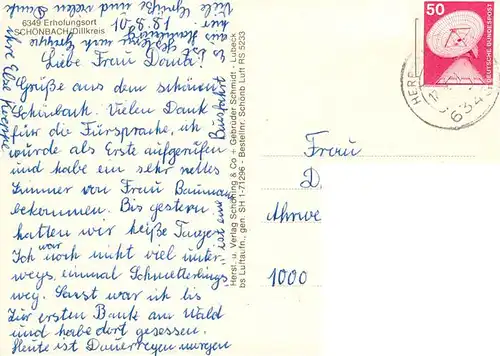 6349 Erholungsort
SCHÖNBACH/Dillkreis
Liebe Frau Danta!
Grüße aus dem schönen
Schönbach. Vielen Dank
für die Fürsprache, ich
wurde als Erste aufgerufen
und habe ein sehr nettes
Zimmer von Frau Baumann
bekommen. Bis gestern
hatten wir heiße Tage.
Ich war noch nicht viel unter-
wegs, einmal Schmetterlings
weg. Sonst war ich bis
zur ersten Bank am Wald
und habe dort gesessen.
Heute ist Dauerregen morgen
ist eine Busfahrt
Viele Grüße und vielen Dank
Ihre Else
Herst. u. Verlag Schöning & Co + Gebrüder Schmidt - Lübeck
bs Luftaufn., gen. SH 1-71296 - Bestellnr. Schönb Luft RS 5233
50
DEUTSCHE BUNDESPOST
HERB
634
Frau
D.
1000